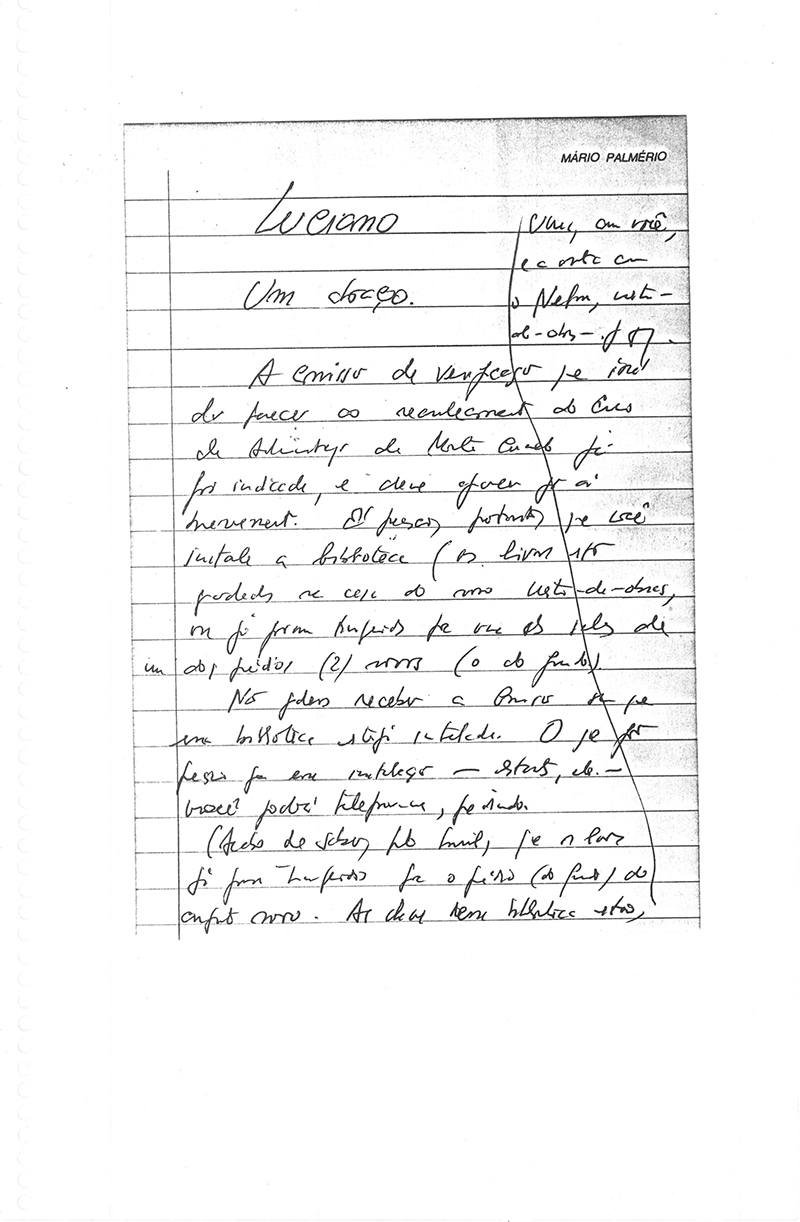 MÁRIO PALMÉRIO
Luciano
Um abraço.
você,
o Nelson, mestre-
de-obras
A comissão de verificação que irá
dar parecer ao reconhecimento do Curso
de Administração de Monte Carmelo já
foi indicada, e deve aparecer por aí
brevemente. É preciso, portanto, que você
instale a biblioteca (os livros estão
guardados na casa do nosso mestre-de-obras,
ou já foram transferidos para uma das salas de
um dos prédios (2) novos (o do fundo).
Não podemos receber a Comissão sem que
essa biblioteca esteja instalada. O que for
preciso para essa instalação — estantes, etc. —
você poderá telefonar, pedindo.
(Acabo de saber, pelo que os livros
já foram transferidos para o prédio (do fundo) do
conjunto novo. As chaves dessa biblioteca estão,